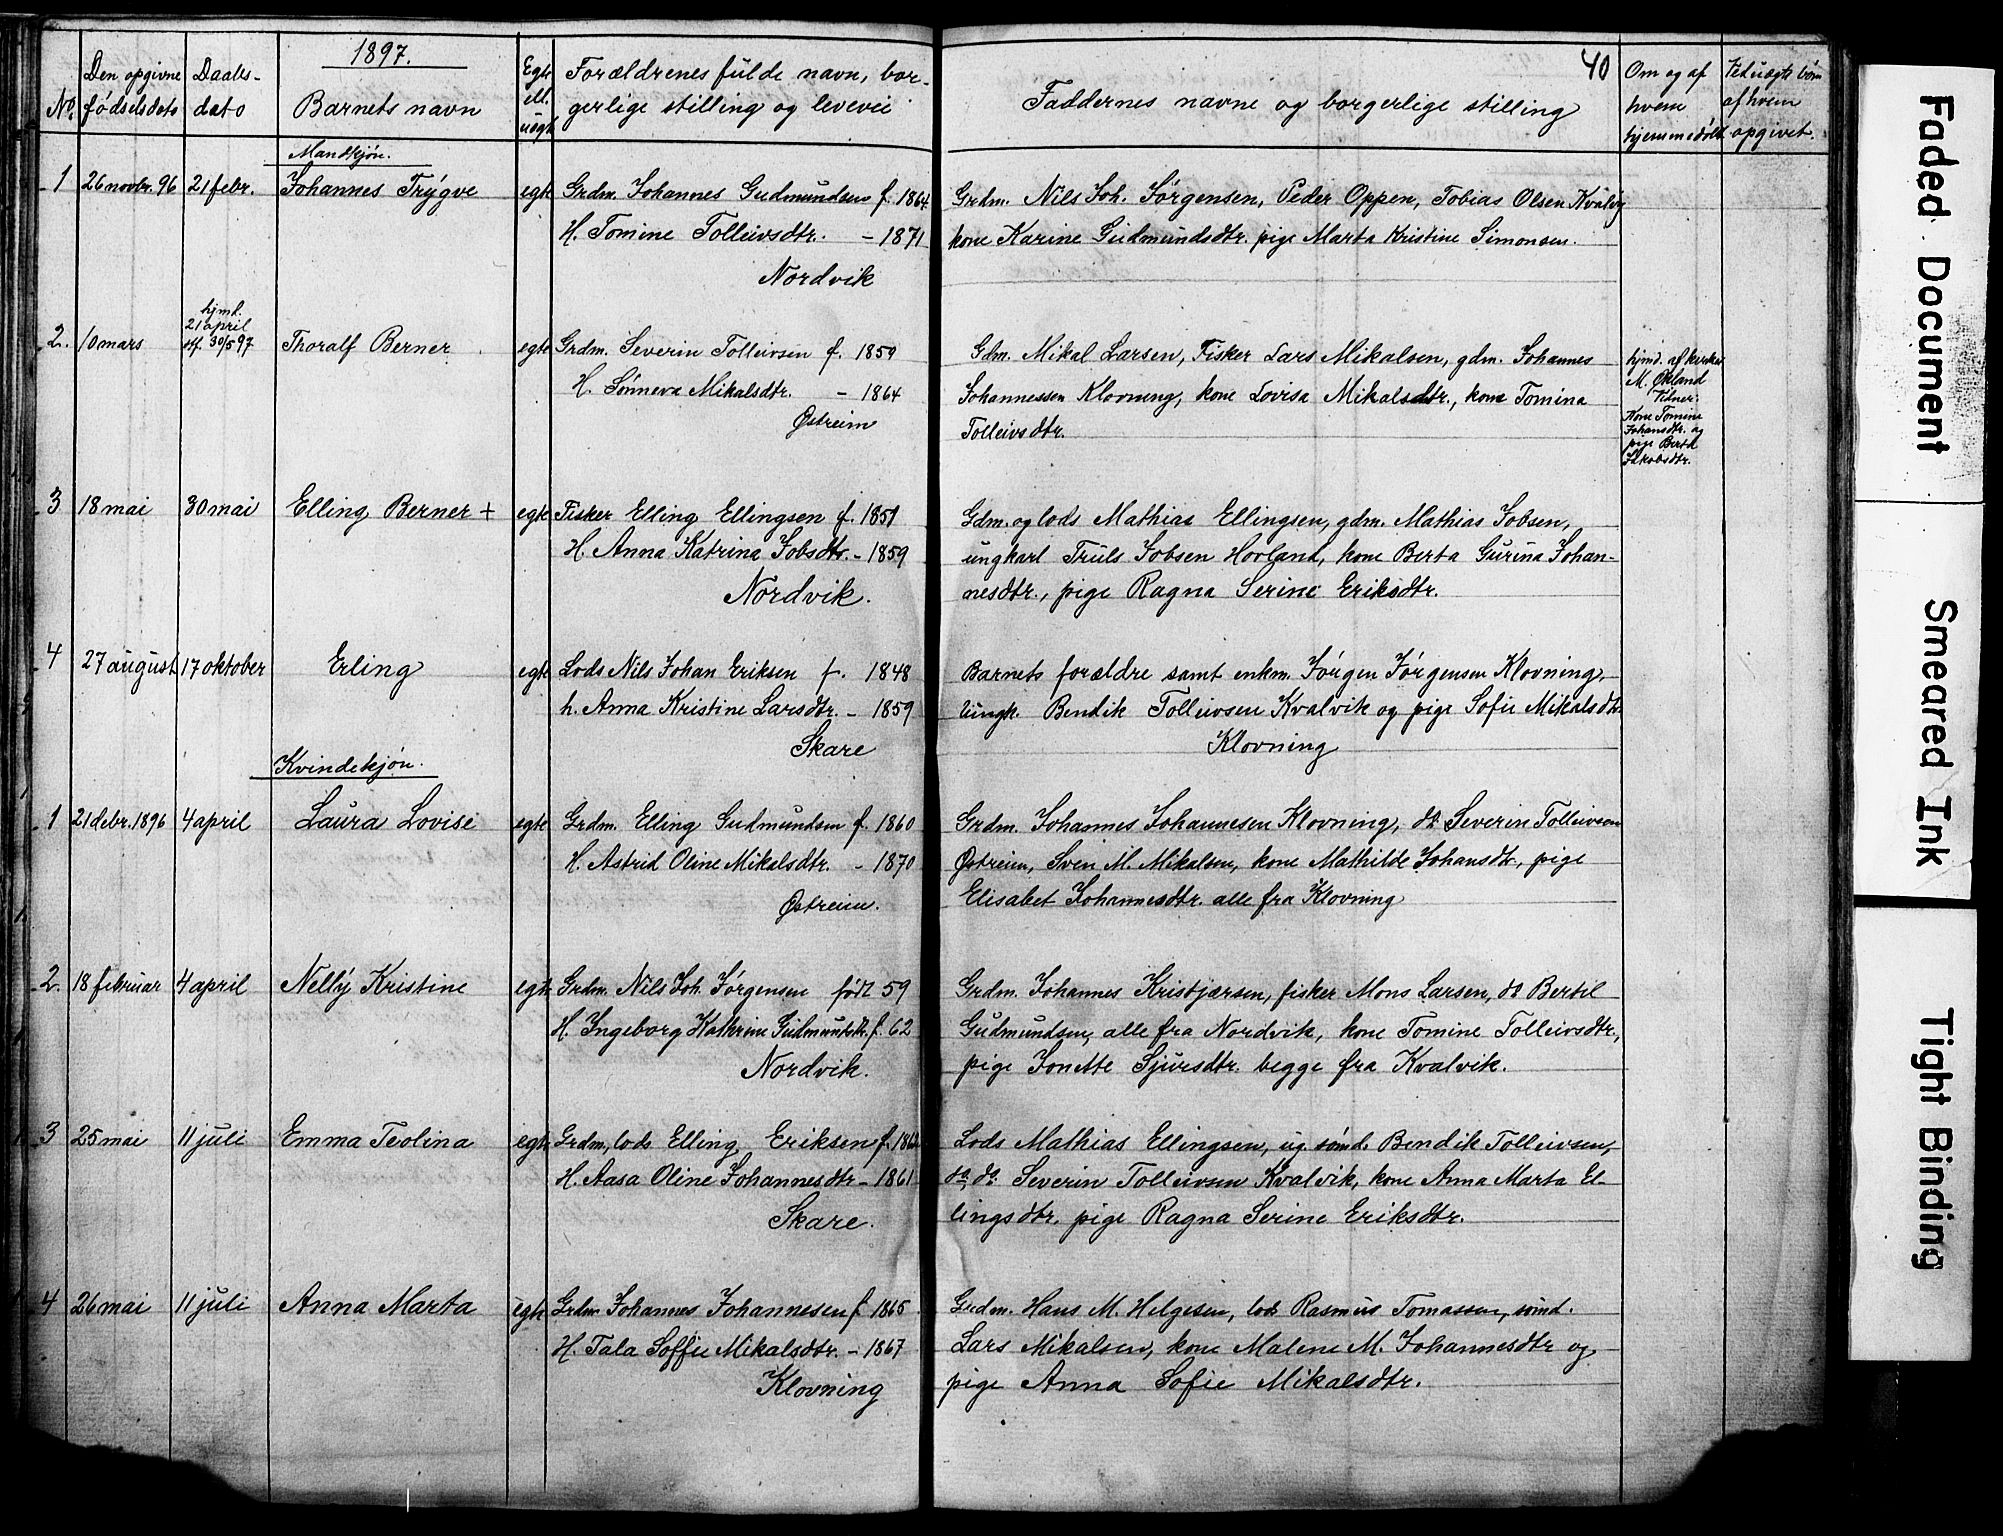 1897.
40
No.
Den opgivne
fødselsdato
Daabs-
dato
Barnets navn
Egte
ell.
uegt.
Forældrenes fulde navn, bor-
gerlige stilling og levevei
Faddernes navne og borgerlige stilling
Om og af
hvem
hjemmedøbt
Ved uegte børn
af hvem
opgivet.
Mandkjøn.
1 26 novbr. 96 21 febr. Johannes Trygve egte Grdm. Johannes Gudmundsen f. 1864.
H. Tomine Tolleivsdtr. - 1871
Nordvik
Grdm. Nils Joh. Jørgensen, Peder Oppen, Tobias Olsen Kvalvig
kone Karine Gudmundsdtr. pige Marta Kristine Simonsen.
hjmd.
21 april
stf. 30/5 97
2. 10 mars Thoralf Berner egte Grdm. Severin Tolleivsen f. 1859
H. Sønneva Mikalsdtr. - 1864
Østreim
Gdm. Mikal Larsen, Fisker Lars Mikalsen, gdm. Johannes
Johannessen Klovning, kone Lovisa Mikalsdtr., kone Tomina
Tolleivsdtr.
hjmd. af kirkes
M. Økland
Vidner:
Kone Tomine
Johansdtr. og
pige Berta
Jakobsdtr.
3 18 mai 30 mai Elling Berner + egte Fisker Elling Ellingsen f. 1851
H. Anna Katrina Jobsdtr. - 1859
Nordvik.
Gdm. og lods Mathias Ellingsen, gdm. Mathias Jobsen,
ungkarl Truls Jobsen Hovland, kone Berta Gurina Johan-
nesdtr., pige Ragna Serine Eriksdtr.
4 27 august 17 oktober Erling egte Lods Nils Johan Eriksen f. 1848
h. Anna Kristine Larsdtr. - 1859
Skare
Barnets forældre samt enkm. Jørgen Jørgensen Klovning,
Ungk. Bendik Tolleivsen Kvalvik og pige Sofie Mikalsdtr.
Klovning
Kvindekjøn.
1 21 debr. 1896 4 april Laura Lovise egte Grdm. Elling Gudmundsen f. 1860
H. Astrid Oline Mikalsdtr. - 1870
Østreim.
Grdm. Johannes Johannesen Klovning, do Severin Tolleivsen
Østreim, Sven M. Mikalsen, kone Mathilde Johansdtr., pige
Elisabet Johannesdtr. alle fra Klovning
2. 18 februar 4 april Nelly Kristine egte Grdm. Nils Joh. Jørgensen født 59
H. Ingeborg Kathrine Gudmundsdtr. f. 62
Nordvik.
Grdm. Johannes Kristjærsen, fisker Mons Larsen, do Bertel
Gudmundsen, alle fra Nordvik, kone Tomine Tolleivsdtr.,
pige Jonette Sjursdtr. begge fra Kvalvik.
3 25 mai 11 juli Emma Teolina egte Grdm, lods Elling Eriksen f.
H. Aasa Oline Johannesdtr - 1861
Skare.
Lods Mathias Ellingsen, ug. sømd. Bendik Tolleivsen,
do, do. Severin Tolleivsen Kvalvik, kone Anna Marta El-
lingsdtr. pige Ragna Serine Eriksdtr.
4 26 mai 11 juli Anna Marta egte Grdm Johannes Johannesen f. 1865
H. Tala Soffie Mikalsdtr. - 1867
Klovning
Grdm. Hans M. Helgesen, lods Rasmus Tomassen, sømd.
Lars Mikalsen, kone Malene M. Johannesdtr og
pige Anna Sofie Mikalsdtr.
Faded Document
Smeared Ink
Tight Binding